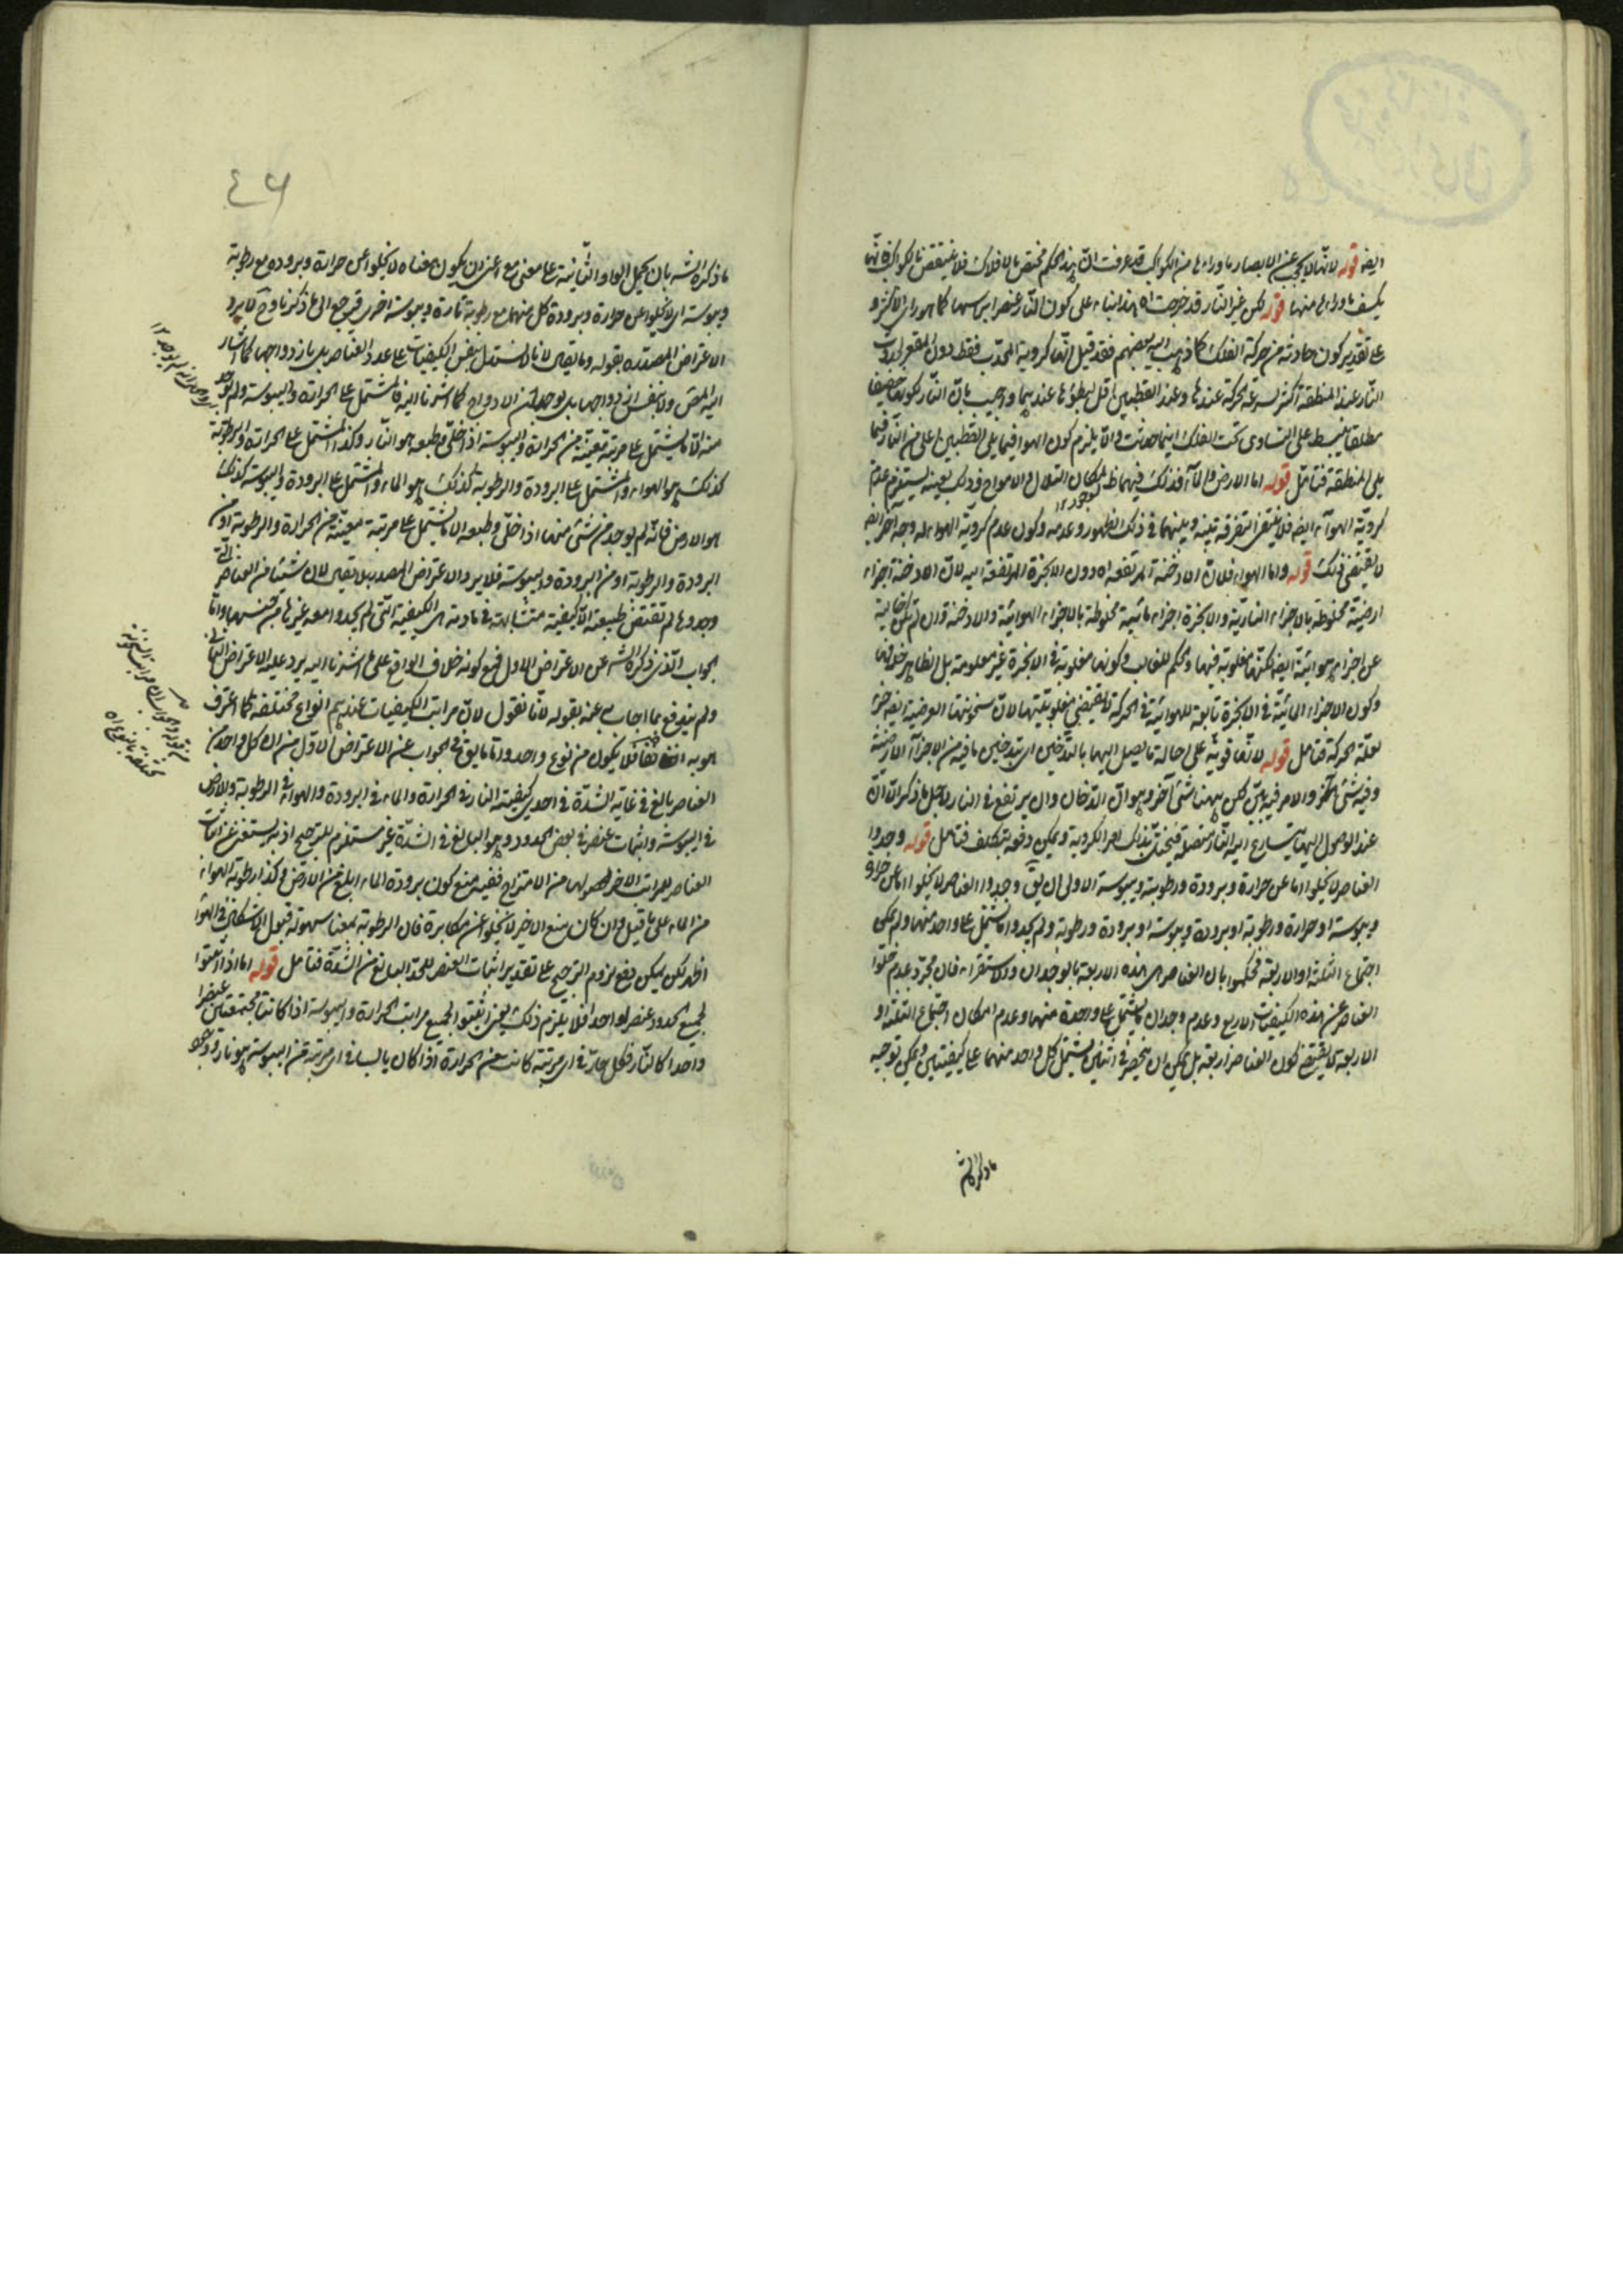 ايضا قوله لانها لا تحجب عن الابصار ما وراءها من الكواكب قد عرفت ان هذا الحكم مختص بالافلاك فلا ينتقض بالكواكب فانها
يكسف ما وراءها منها قوله لكن غير النار قد خرجت اه هذا بناء على كون النار عنصرا براسها كما هو راى الاكثر و
على تقدير كون حادثة من حركة الفلك كما ذهب اليه بعضهم فقد قيل انها كروية المحدب فقط دون المقعر لان
النار عند المنطقة اكثر لسرعة الحركة عندها وعند القطبين اقل لبطؤها عندهما واجيب بان النار لكونه خفيفا
مطلقا ينبسط على التساوى تحت الفلك اينما حدثت والا يلزم كون الهواء فيما يلى القطبين اعلى من النار فيما
يلى المنطقة فتامل قوله اما الارض والماء فذلك فيهما ظ لمكان التلال والامواج وذلك بعينه يستلزم عدم
كروية الهواء ايضا فلا ينبغى التفرقة بينه وبينهما فى ذلك الظهور وعدمه وكون عدم كروية الهواء له وجه آخر ايضا
لا يقتضى ذلك قوله واما الهواء فلان الادخنة المرتفعة اه دون الابخرة المرتفعة اليه لان الادخنة اجزاء
ارضية مخلوطة بالاجزاء النارية والابخرة اجزاء مائية مخلوطة بالاجزاء الهوائية والادخنة وان لم تكن خالية
عن اجزاء هوائية ايضا لكنها مغلوبة فيها والحكم للغالب وكونها مغلوبة فى الابخرة غير معلومة بل الظاهر خلافها
وكون الاجزاء المائية فى الابخرة تابعة للهوائية فى الحركة لا يقتضى مغلوبيتها لان سخونتها العرضية ايضا جزء
لعلة الحركة فتامل قوله لانها قوية على احالة ما يصل اليها بالتدخين اى تدخين ما فيه من الاجزاء الارضية
وفيه شئ آخر والامر فيه هين لكن ههنا شئ آخر وهو ان الدخان وان يرتفع فى النار لاجل ما ذكر الا ان
عند الوصول اليها يتسارع اليه النار متصلة فيختل بذلك امر الكروية ويمكن دفعه بتكلف فتامل قوله وجدوا
العناصر لا يخلوا اما عن حرارة وبرودة ورطوبة ويبوسة الاولى ان يق وجدوا العناصر لا يخلوا اما عن حرارة
ويبوسة او حرارة ورطوبة او برودة ويبوسة او برودة ورطوبة ولم يجدوا ما يشتمل على واحد منها ولم يمكن
اجتماع الثلثة او الاربعة فحكموا بان العناصر هى هذه الاربعة بالوجدان والاستقراء فان مجرد عدم خلوا
العناصر عن هذه الكيفيات الاربع وعدم وجدان ما يشتمل على واحدة منها وعدم امكان اجتماع الثلثة او
الاربعة لا يقتضى كون العناصر اربعة بل يمكن ان ينحصر فى اثنين يشتمل كل واحد منهما على كيفيتين ويمكن توجيه
ما ذكره الش
٤٦
ما ذكره الش بان يحمل الواو الثانية على معنى مع اعنى ان يكون معناه لا يخلوا عن حرارة وبرودة مع رطوبة
ويبوسة اى لا يخلوا عن حرارة وبرودة كل منهما مع رطوبة تارة ويبوسة اخرى فيرجع الى ما ذكرنا وح لا يرد
الاعتراض المصدر بقوله وما يقال لانا لا نستدل بنفس الكيفيات على عدد العناصر بل بازدواجها كما اشار
اليه المص ولا بنفس ازدواجها بل بوجدان الازدواج كما اشرنا اليه فالمشتمل على الحرارة واليبوسة ولم يوجد
منه الا ما يشتمل على مرتبة معينة من الحرارة واليبوسة اذا خلى وطبعه هو النار وكذا المشتمل على الحرارة والرطوبة
كذلك هو الهواء والمشتمل على البرودة والرطوبة كذلك هو الماء والمشتمل على البرودة واليبوسة كذلك
هو الارض فانه لم يوجد من شئ منها اذا خلى وطبعه الا ما يشتمل على مرتبة معينة من الحرارة والرطوبة او من
البرودة والرطوبة او من البرودة واليبوسة فلا يرد الاعتراض المصدر بلا يقال لان شيئا من العناصر التى
وجدوها لم تقتض طبيعته الا كيفية متشابهة فى مادته هى الكيفية التى لم يجدوا معه غيرها من جنسها واما
الجواب الذى ذكره الش عن الاعتراض الاول فمع كونه خلاف الواقع على ما اشرنا اليه يرد عليه الاعتراض الثانى
ولم يندفع بما اجاب عنه بقوله لانا نقول لان مراتب الكيفيات عندهم انواع مختلفة كما اعترف
هو به فلا يكون من نوع واحد واما ما يق فى الجواب عن الاعتراض الاول من ان كل واحد من
العناصر بالغ فى غاية الشدة فى احدى كيفيته النار فى الحرارة والماء فى البرودة والهواء فى الرطوبة والارض
فى اليبوسة واثبات عنصر فى بعض الحدود وهو البالغ فى الشدة غير مستلزم للترجيح اذ به يستغنى عن اثبات
العناصر للمراتب الاخر لحصولها من الامتزاج ففيه منع كون برودة الماء ابلغ من الارض وكذا رطوبة الهواء
من الماء على ما قيل وان كان منع الاخير لا يخلوا عن مكابرة فان الرطوبة بمعنى سهولة قبول الاشكال فى الهواء
اظهر لكن يمكن دفع لزوم الترجيح على تقدير اثبات العنصر للحد البالغ من الشدة فتامل قوله اما اذا اثبتوا
لجميع الحدود عنصرا واحدا فلا يلزم ذلك يعنى اثبتوا لجميع مراتب الحرارة واليبوسة اذا كانتا مجتمعتين عنصرا
واحدا كالنار فكل حار فى اى مرتبة كانت من الحرارة اذا كان يابسا فى اى مرتبة من اليبوسة هو نار